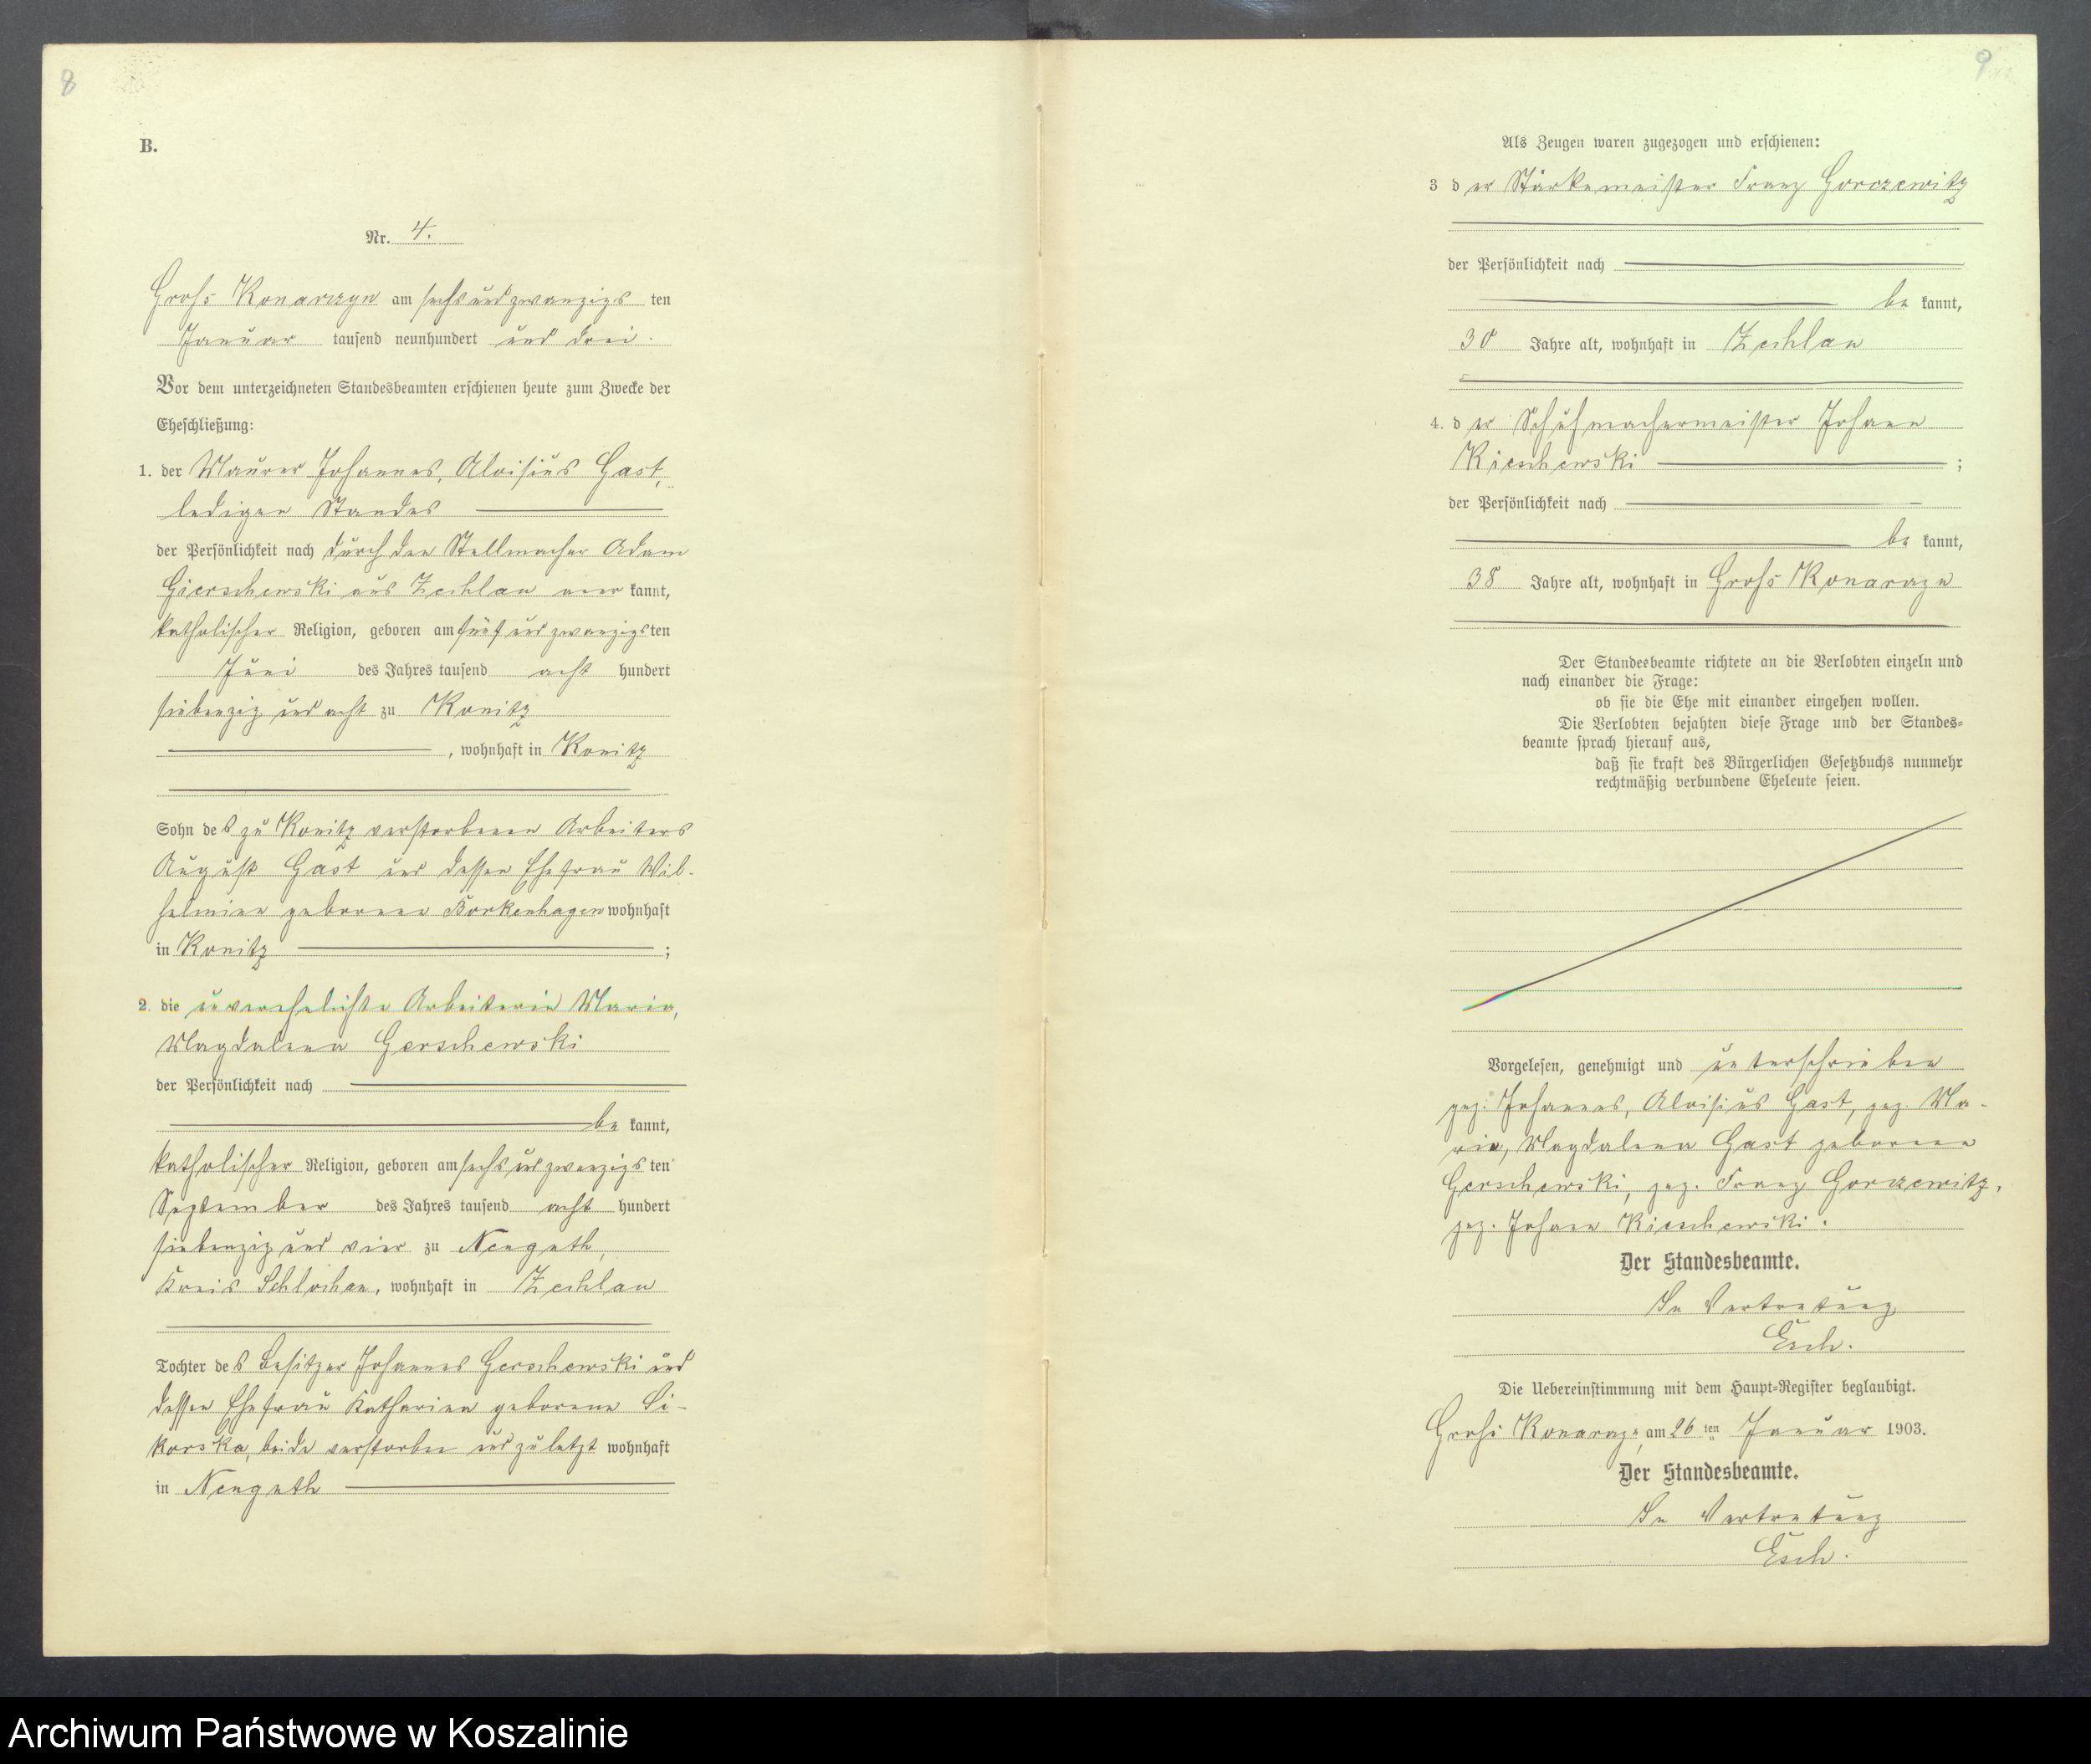 8
B.
Nr. 4.
Groß Konarczyn am sechsundzwanzigsten
Januar tausend neunhundert und drei.
Vor dem unterzeichneten Standesbeamten erschienen heute zum Zwecke der
Eheschließung:
1. der Maurer Johannes, Aloisius Gast,
ledigen Standes
der Persönlichkeit nach durch den Stellmacher Adam
Gierschewski aus Zechlau aner kannt,
katholischer Religion, geboren am fünfundzwanzigsten
Juni des Jahres tausend acht hundert
siebenzig und acht zu Konitz
, wohnhaft in Konitz
Sohn des zu Konitz verstorbenen Arbeiters
August Gast und dessen Ehefrau Wil-
helmine geborenen Borkenhagen wohnhaft
in Konitz ;
2. die unverehelichte Arbeiterin Maria,
Magdalena Gerschewski
der Persönlichkeit nach
be kannt,
katholischer Religion, geboren am sechsundzwanzigsten
September des Jahres tausend acht hundert
siebenzig und vier zu Neuguth,
Kreis Schlochau, wohnhaft in Zechlau
Tochter des Besitzer Johannes Gerschewski und
dessen Ehefrau Katharina geborene Si-
korska, beide verstorben und zuletzt wohnhaft
in Neuguth
9
Als Zeugen waren zugezogen und erschienen:
3 der Stärkemeister Franz Gorczewitz
der Persönlichkeit nach
be kannt,
30 Jahre alt, wohnhaft in Zechlau
4. der Schuhmachermeister Johann
Kieschewski ;
der Persönlichkeit nach
be kannt,
38 Jahre alt, wohnhaft in Groß Konarczn
Der Standesbeamte richtete an die Verlobten einzeln und
nach einander die Frage:
ob sie die Ehe mit einander eingehen wollen.
Die Verlobten bejahten diese Frage und der Standes-
beamte sprach hierauf aus,
daß sie kraft des Bürgerlichen Gesetzbuchs nunmehr
rechtmäßig verbundene Eheleute seien.
Vorgelesen, genehmigt und unterschrieben
gez. Johannes, Aloisius Gast, gez. Ma-
ria, Magdalena Gast geborene
Gerschewski, gez. Franz Gorczewitz,
gez. Johann Kieschewski.
Der Standesbeamte.
In Vertretung
Esch.
Die Uebereinstimmung mit dem Haupt-Register beglaubigt.
Groß Konarczn, am 26 ten Januar 1903.
Der Standesbeamte.
In Vertretung
Esch.
Archiwum Państwowe w Koszalinie